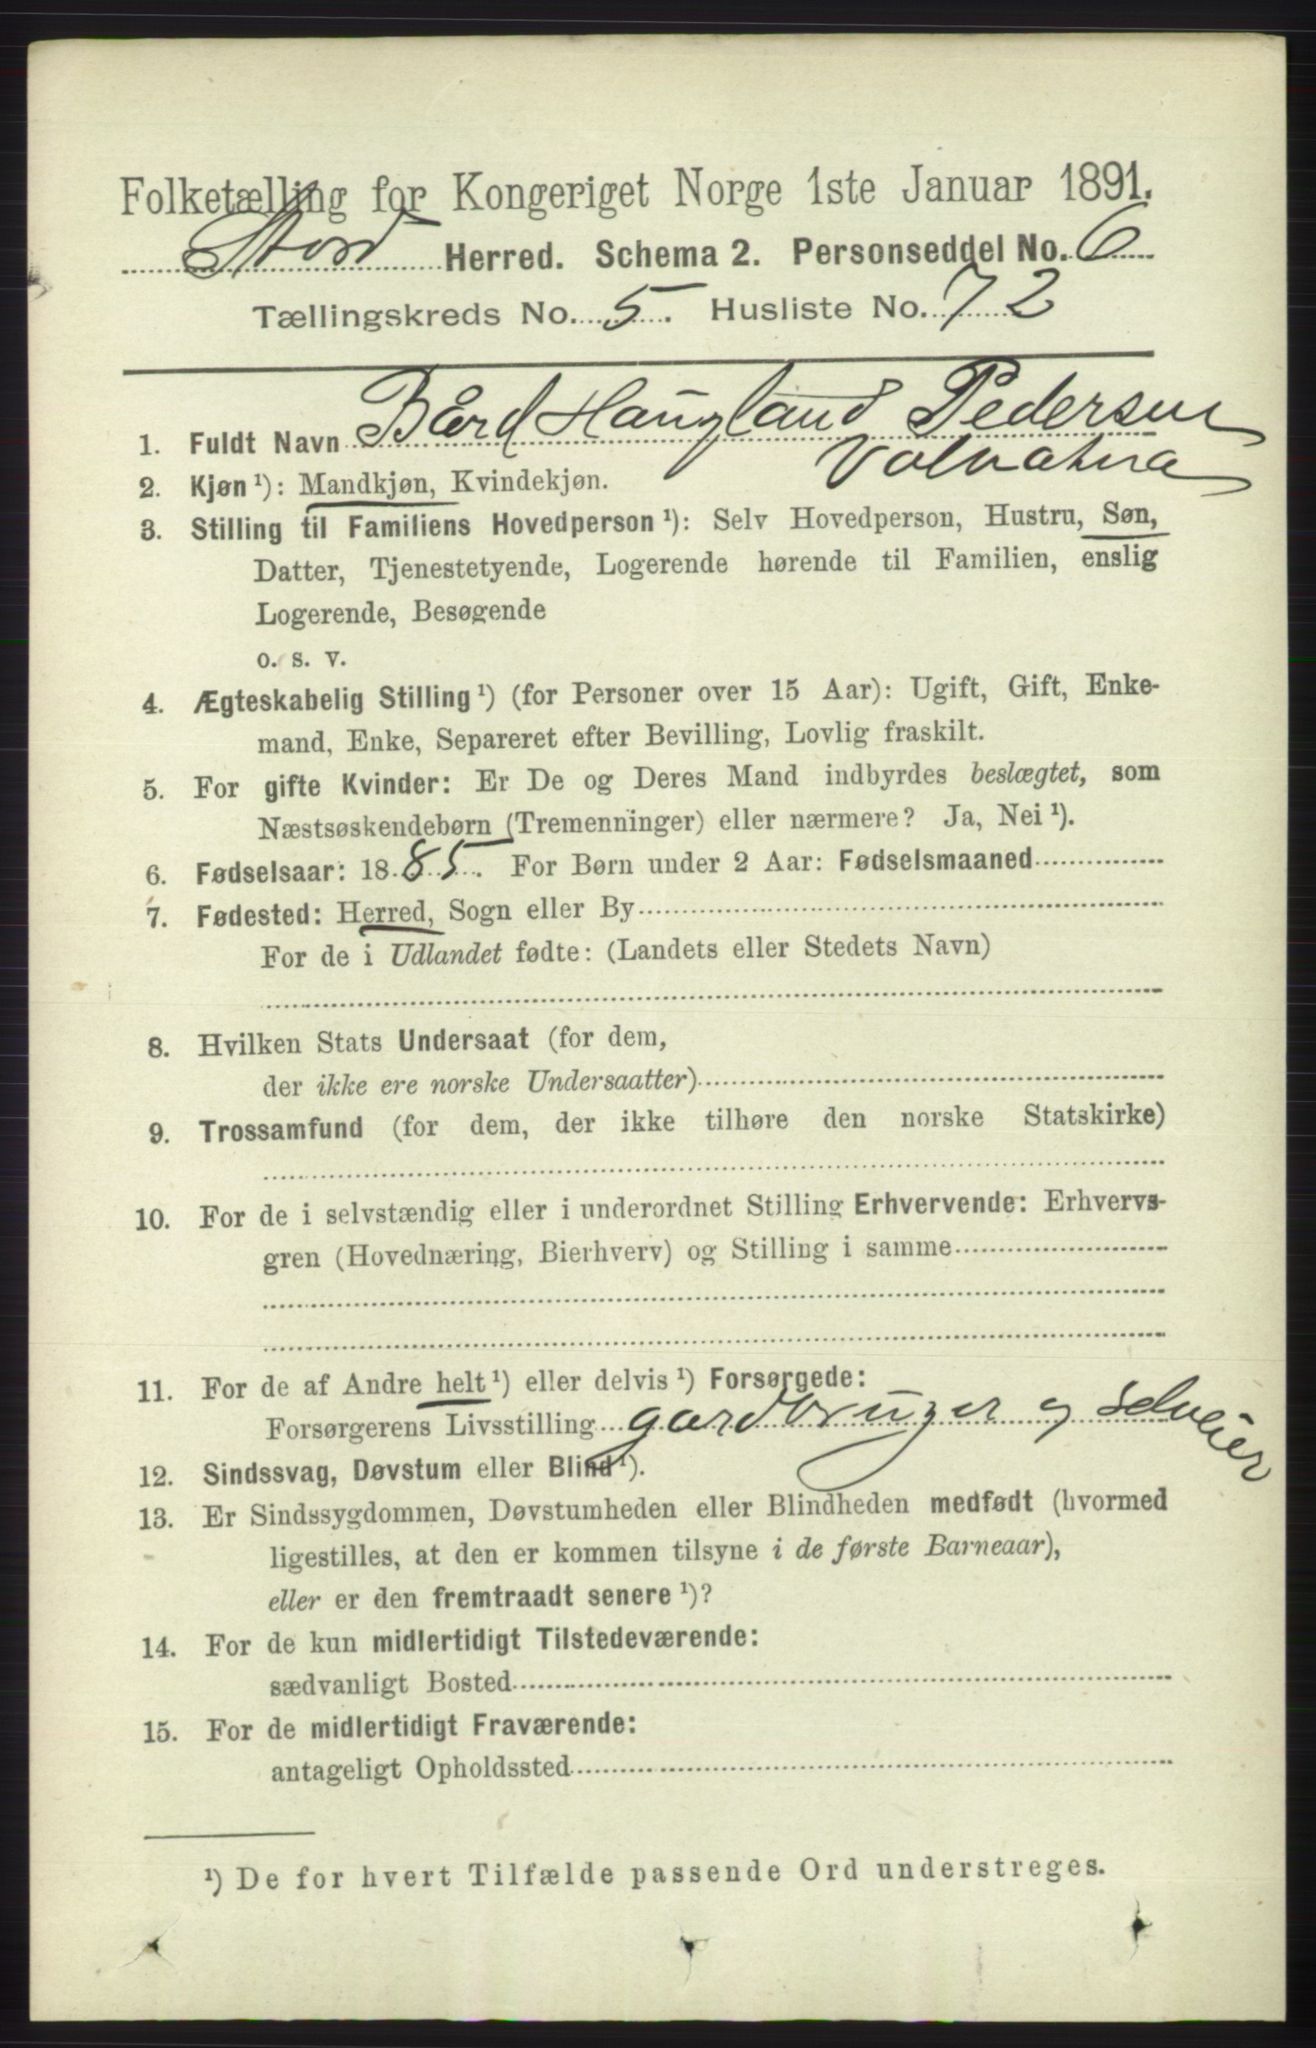 Folketælling for Kongeriget Norge 1ste Januar 1891.
Stord Herred. Schema 2. Personseddel No. 6
Tællingskreds No. 5. Husliste No. 72
1. Fuldt Navn Bård Haugland Pedersen
Valvatna
2. Kjøn ¹): Mandkjøn, Kvindekjøn.
3. Stilling til Familiens Hovedperson ¹): Selv Hovedperson, Hustru, Søn,
Datter, Tjenestetyende, Logerende hørende til Familien, enslig
Logerende, Besøgende
o. s. v.
4. Ægteskabelig Stilling ¹) (for Personer over 15 Aar): Ugift, Gift, Enke-
mand, Enke, Separeret efter Bevilling, Lovlig fraskilt.
5. For gifte Kvinder: Er De og Deres Mand indbyrdes beslægtet, som
Næstsøskendebørn (Tremenninger) eller nærmere? Ja, Nei ¹).
6. Fødselsaar: 1885. For Børn under 2 Aar: Fødselsmaaned
7. Fødested: Herred, Sogn eller By
For de i Udlandet fødte: (Landets eller Stedets Navn)
8. Hvilken Stats Undersaat (for dem,
der ikke ere norske Undersaatter)
9. Trossamfund (for dem, der ikke tilhøre den norske Statskirke)
10. For de i selvstændig eller i underordnet Stilling Erhvervende: Erhvervs-
gren (Hovednæring, Bierhverv) og Stilling i samme
11. For de af Andre helt ¹) eller delvis ¹) Forsørgede:
Forsørgerens Livsstilling gardbruger og selveier
12. Sindssvag, Døvstum eller Blind ¹).
13. Er Sindssygdommen, Døvstumheden eller Blindheden medfødt (hvormed
ligestilles, at den er kommen tilsyne i de første Barneaar),
eller er den fremtraadt senere ¹)?
14. For de kun midlertidigt Tilstedeværende:
sædvanligt Bosted
15. For de midlertidigt Fraværende:
antageligt Opholdssted
¹) De for hvert Tilfælde passende Ord understreges.